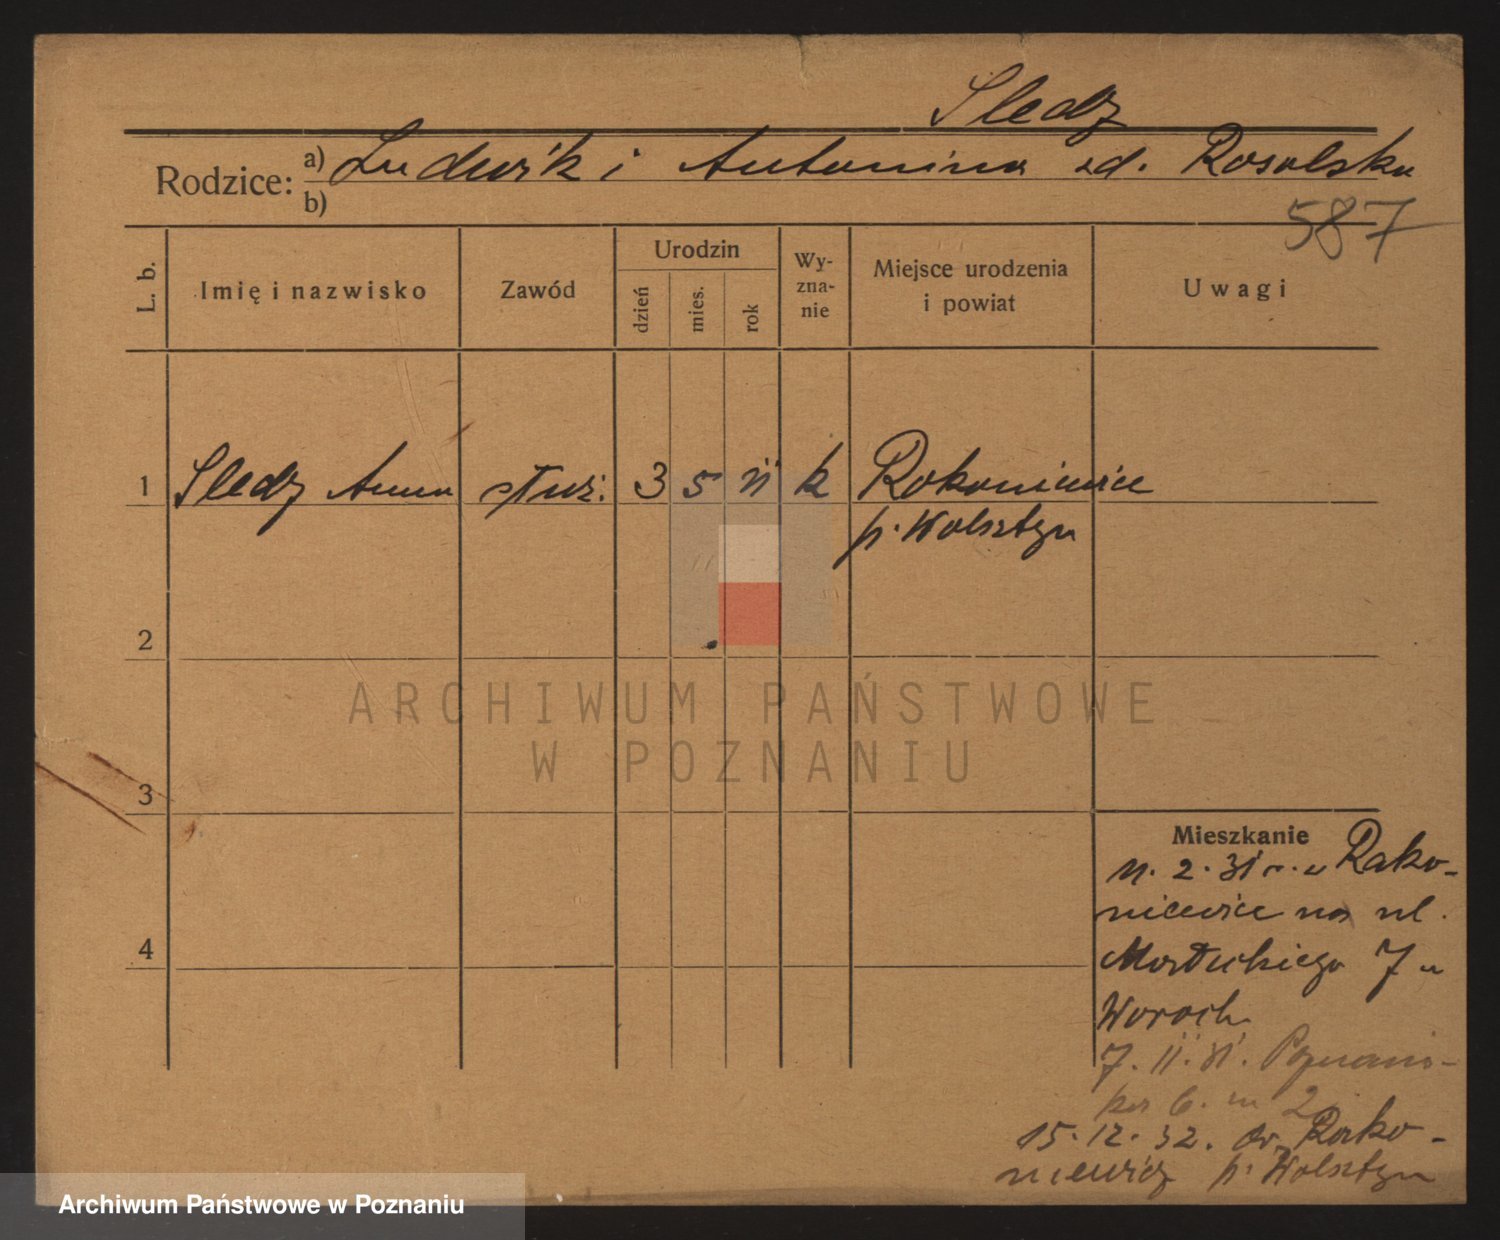 Sledz
Rodzice: a) Ludwik i Antonina zd. Rosolska
b)
587
L. b. Imię i nazwisko Zawód Urodzin dzień mies. rok Wyznanie Miejsce urodzenia i powiat Uwagi
1 Sledz Anna służ. 3 5 11 k Rakoniewice
p. Wolsztyn
2
ARCHIWUM PAŃSTWOWE
W POZNANIU
3
Mieszkanie
11. 2. 31 r. z Rako-
niewice na ul.
7 u
7. 11. 31. Poznańs-
ka 6. m 2
15. 12. 32. do Rako-
niewicz p. Wolsztyn
4
Archiwum Państwowe w Poznaniu